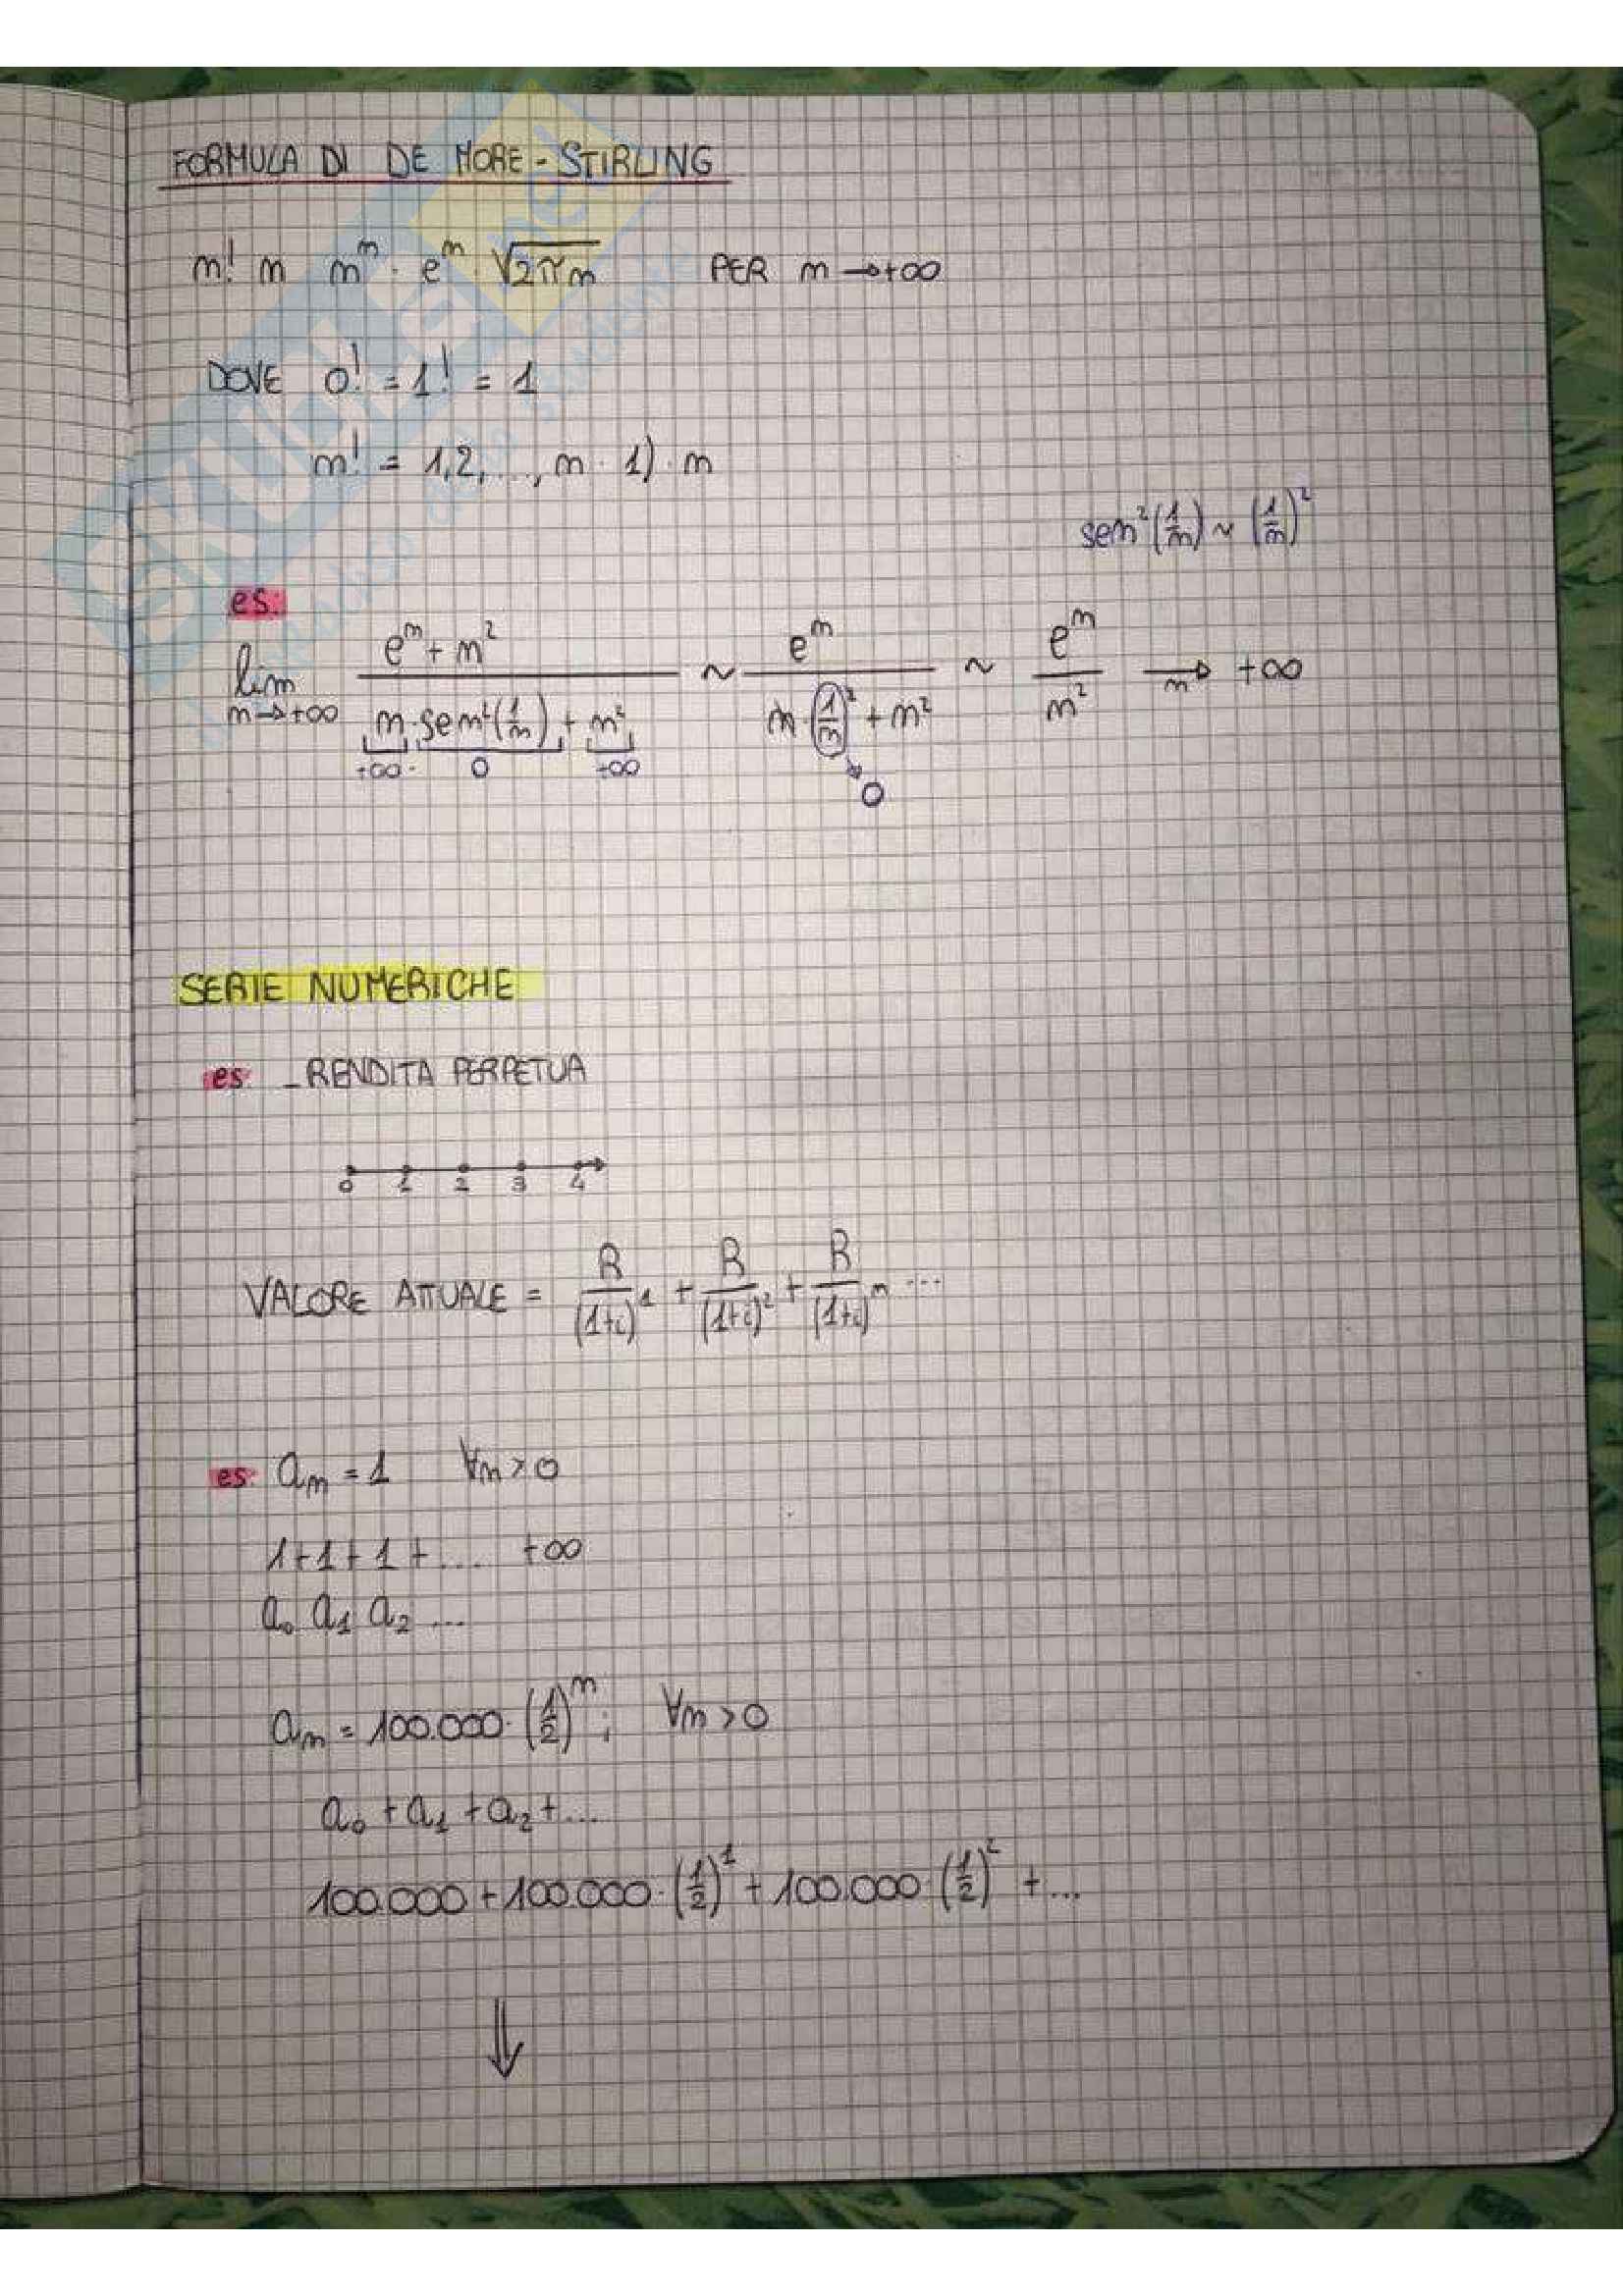 FORMULA DI DE MORE-STIRLING
m! m m^m · e^m · √2πm PER m → +∞
DOVE 0! = 1! = 1
m! = 1,2,..., m · 1) · m
sem²(1/m) ~ (1/m)²
es:
lim m→+∞ (e^m + m²) / (m · sem²(1/m) + m²) ~ e^m / (m · (1/m)² + m²) ~ e^m / m² →m +∞
+∞ · 0 +∞
0
SERIE NUMERICHE
es: - RENDITA PERPETUA
0 1 2 3 4
VALORE ATTUALE = R/(1+i)^1 + R/(1+i)^2 + R/(1+i)^m ...
es: a_m = 1 ∀m > 0
1+1+1+... +∞
a_0 a_1 a_2 ...
a_m = 100.000 · (1/2)^m ; ∀m > 0
a_0 + a_1 + a_2 + ...
100.000 + 100.000 · (1/2)^1 + 100.000 · (1/2)^2 + ...
⇓
SKUOLA.net